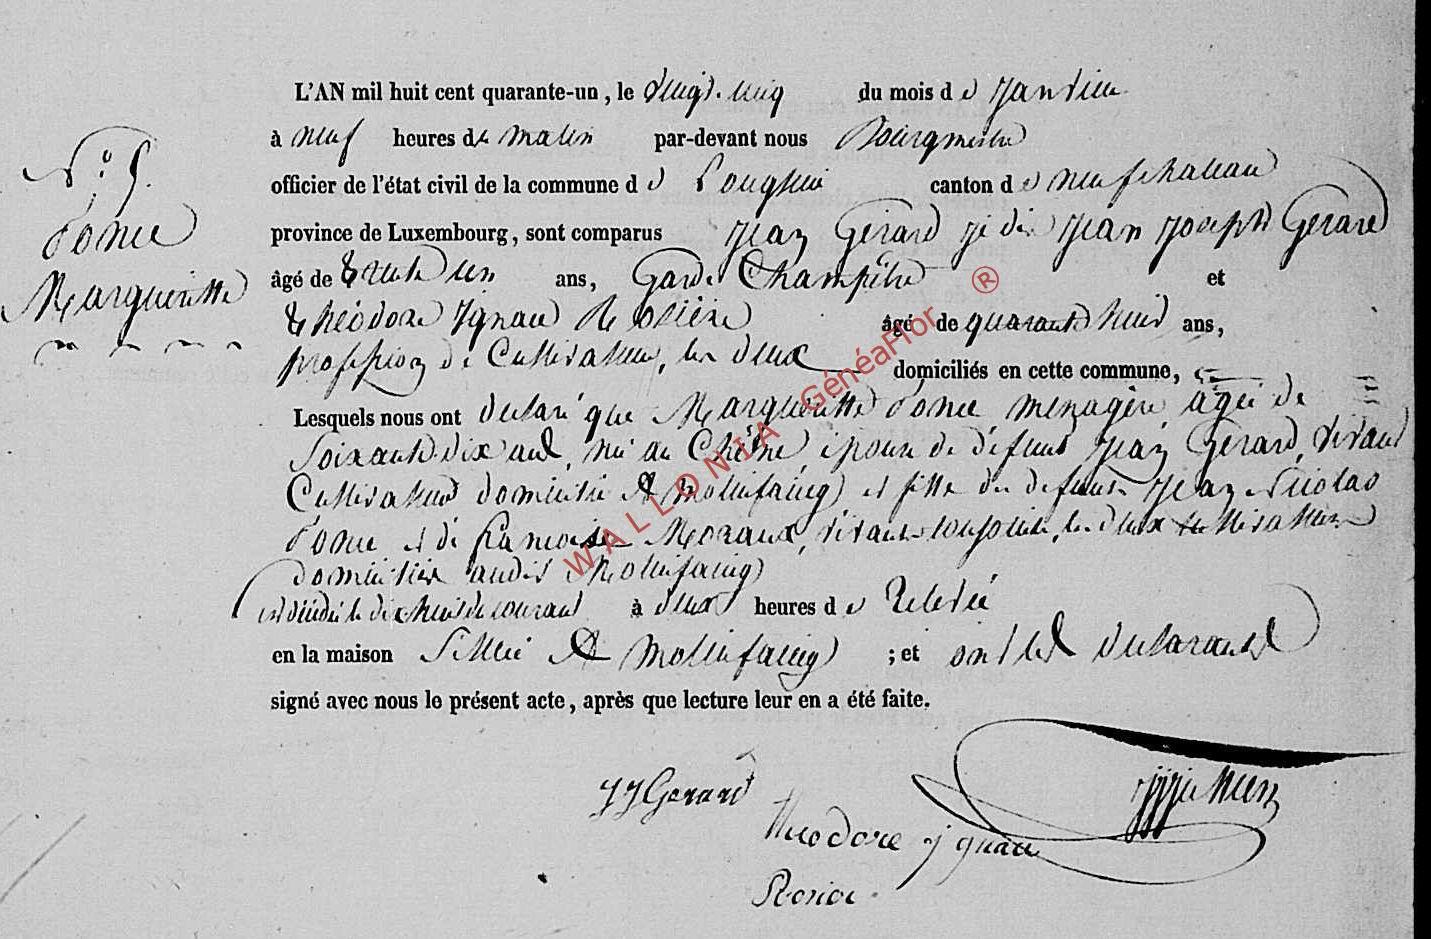 N.° 5.
Ponce
Margueritte
L'AN mil huit cent quarante-un, le vingt-cinq du mois de Janvier
à neuf heures du matin par-devant nous Bourgmestre
officier de l'état civil de la commune de Longlier canton de neufchateau
province de Luxembourg, sont comparus Jean Gérard je dis Jean Joseph Gérard
âgé de trente un ans, Garde Champêtre et
théodore Ignace Rosière âgé de quarante huit ans,
profession de Cultivateur, les deux domiciliés en cette commune,
Lesquels nous ont déclaré que Marguerite Ponce ménagère agée de
soixante dix ans, née au Chêne, épouse de défunt Jean Gérard, vivant
Cultivateur domicilié à Mollinfaing et fille des défunts Jean Nicolas
Ponce et de françoise Moraux, vivans conjoints, les deux cultivateurs
domiciliés audit Mollinfaing
est décédée le dix huit du courant à deux heures de relevée
en la maison sittée à Mollinfaing ; et ont les déclarants
signé avec nous le présent acte, après que lecture leur en a été faite.
JJ Gerard
Theodore ignace
WALLONIA GénéaFlor ®